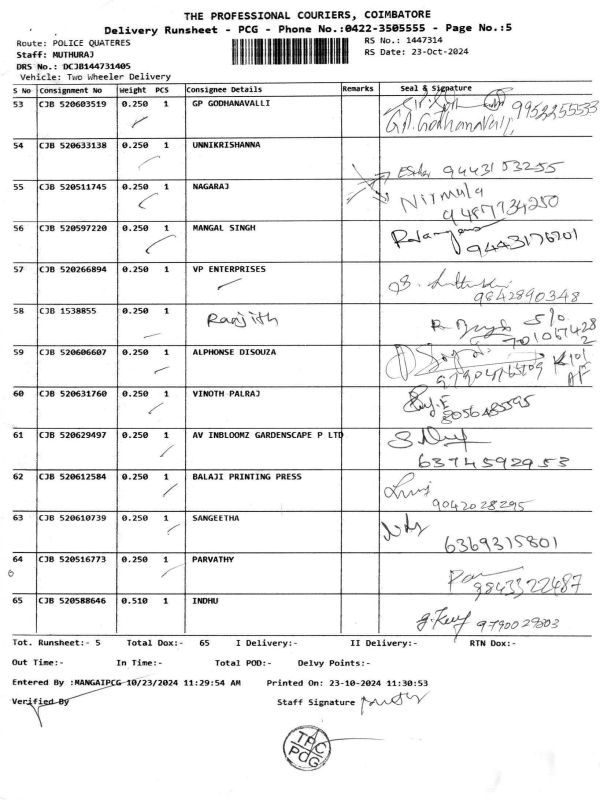 THE PROFESSIONAL COURIERS, COIMBATORE
Delivery Runsheet - PCG - Phone No.:0422-3505555 - Page No.:5
Route: POLICE QUATERES RS No.: 1447314
Staff: MUTHURAJ RS Date: 23-Oct-2024
DRS No.: DCJB144731405
Vehicle: Two Wheeler Delivery
S No Consignment No Weight PCS Consignee Details Remarks Seal & Signature
53 CJB 520603519 0.250 1 GP GODHANAVALLI 9952255533
G.P. Godhanavalli
54 CJB 520633138 0.250 1 UNNIKRISHANNA
9443153255
55 CJB 520511745 0.250 1 NAGARAJ Nirmula
9487734250
56 CJB 520597220 0.250 1 MANGAL SINGH
9443176201
57 CJB 520266894 0.250 1 VP ENTERPRISES
9842890348
58 CJB 1538855 0.250 1 Ranjith S/o
59 CJB 520606607 0.250 1 ALPHONSE DISOUZA
60 CJB 520631760 0.250 1 VINOTH PALRAJ
8056485595
61 CJB 520629497 0.250 1 AV INBLOOMZ GARDENSCAPE P LTD
6374592953
62 CJB 520612584 0.250 1 BALAJI PRINTING PRESS
9042028295
63 CJB 520610739 0.250 1 SANGEETHA
6369315801
64 CJB 520516773 0.250 1 PARVATHY
9843322487
65 CJB 520588646 0.510 1 INDHU
9790029803
Tot. Runsheet:- 5 Total Dox:- 65 I Delivery:- II Delivery:- RTN Dox:-
Out Time:- In Time:- Total POD:- Delvy Points:-
Entered By :MANGAIPCG 10/23/2024 11:29:54 AM Printed On: 23-10-2024 11:30:53
Verified By Staff Signature
TPC
PCG